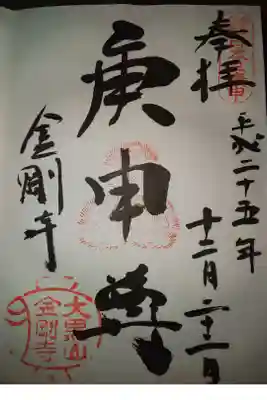 奉拝
平成二十五年
十二月二十一日
庚申尊
金剛寺
大黒山
金剛寺